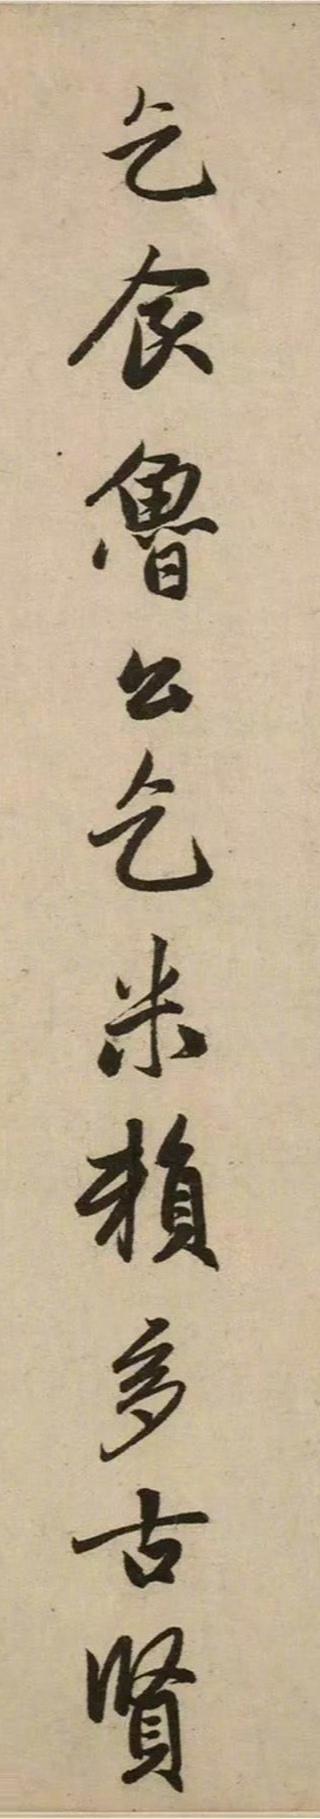 乞食魯公乞米賴多古賢